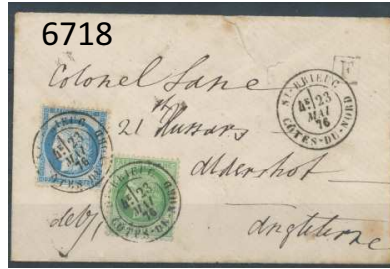 6718
Colonel Lane
21 Hussars
Aldershot
Angleterre
ST-BRIEUC
23
MAI
76
CÔTES-DU-NORD
ST-BRIEUC
23
MAI
76
CÔTES-DU-NORD
ST-BRIEUC
23
MAI
76
CÔTES-DU-NORD